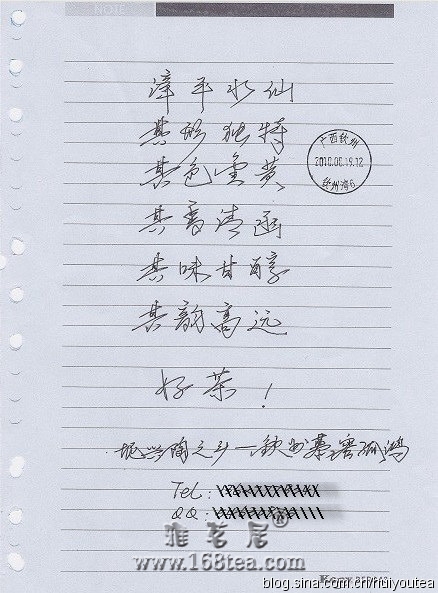 NOTE
漳平水仙
其形独特
其色金黄
其香清幽
其味甘醇
其韵高远
好茶！
坭兴陶之乡—钦州 孤鸿
Tel:
QQ:
广西钦州
2010.06.19.12
钦州湾6
雅茗居®
www.168tea.com
blog.sina.com.cn/ruiyoutea